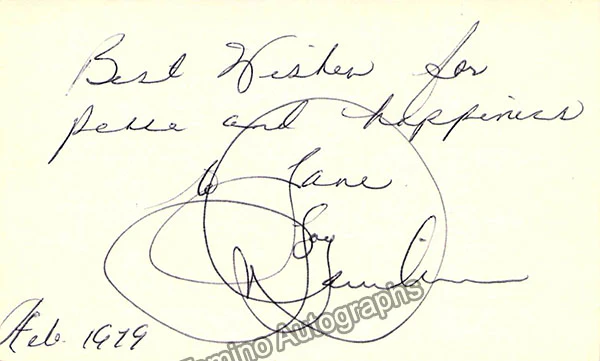 Best Wishes for
peace and happiness
to Jane
Feb. 1979
Tamino Autographs